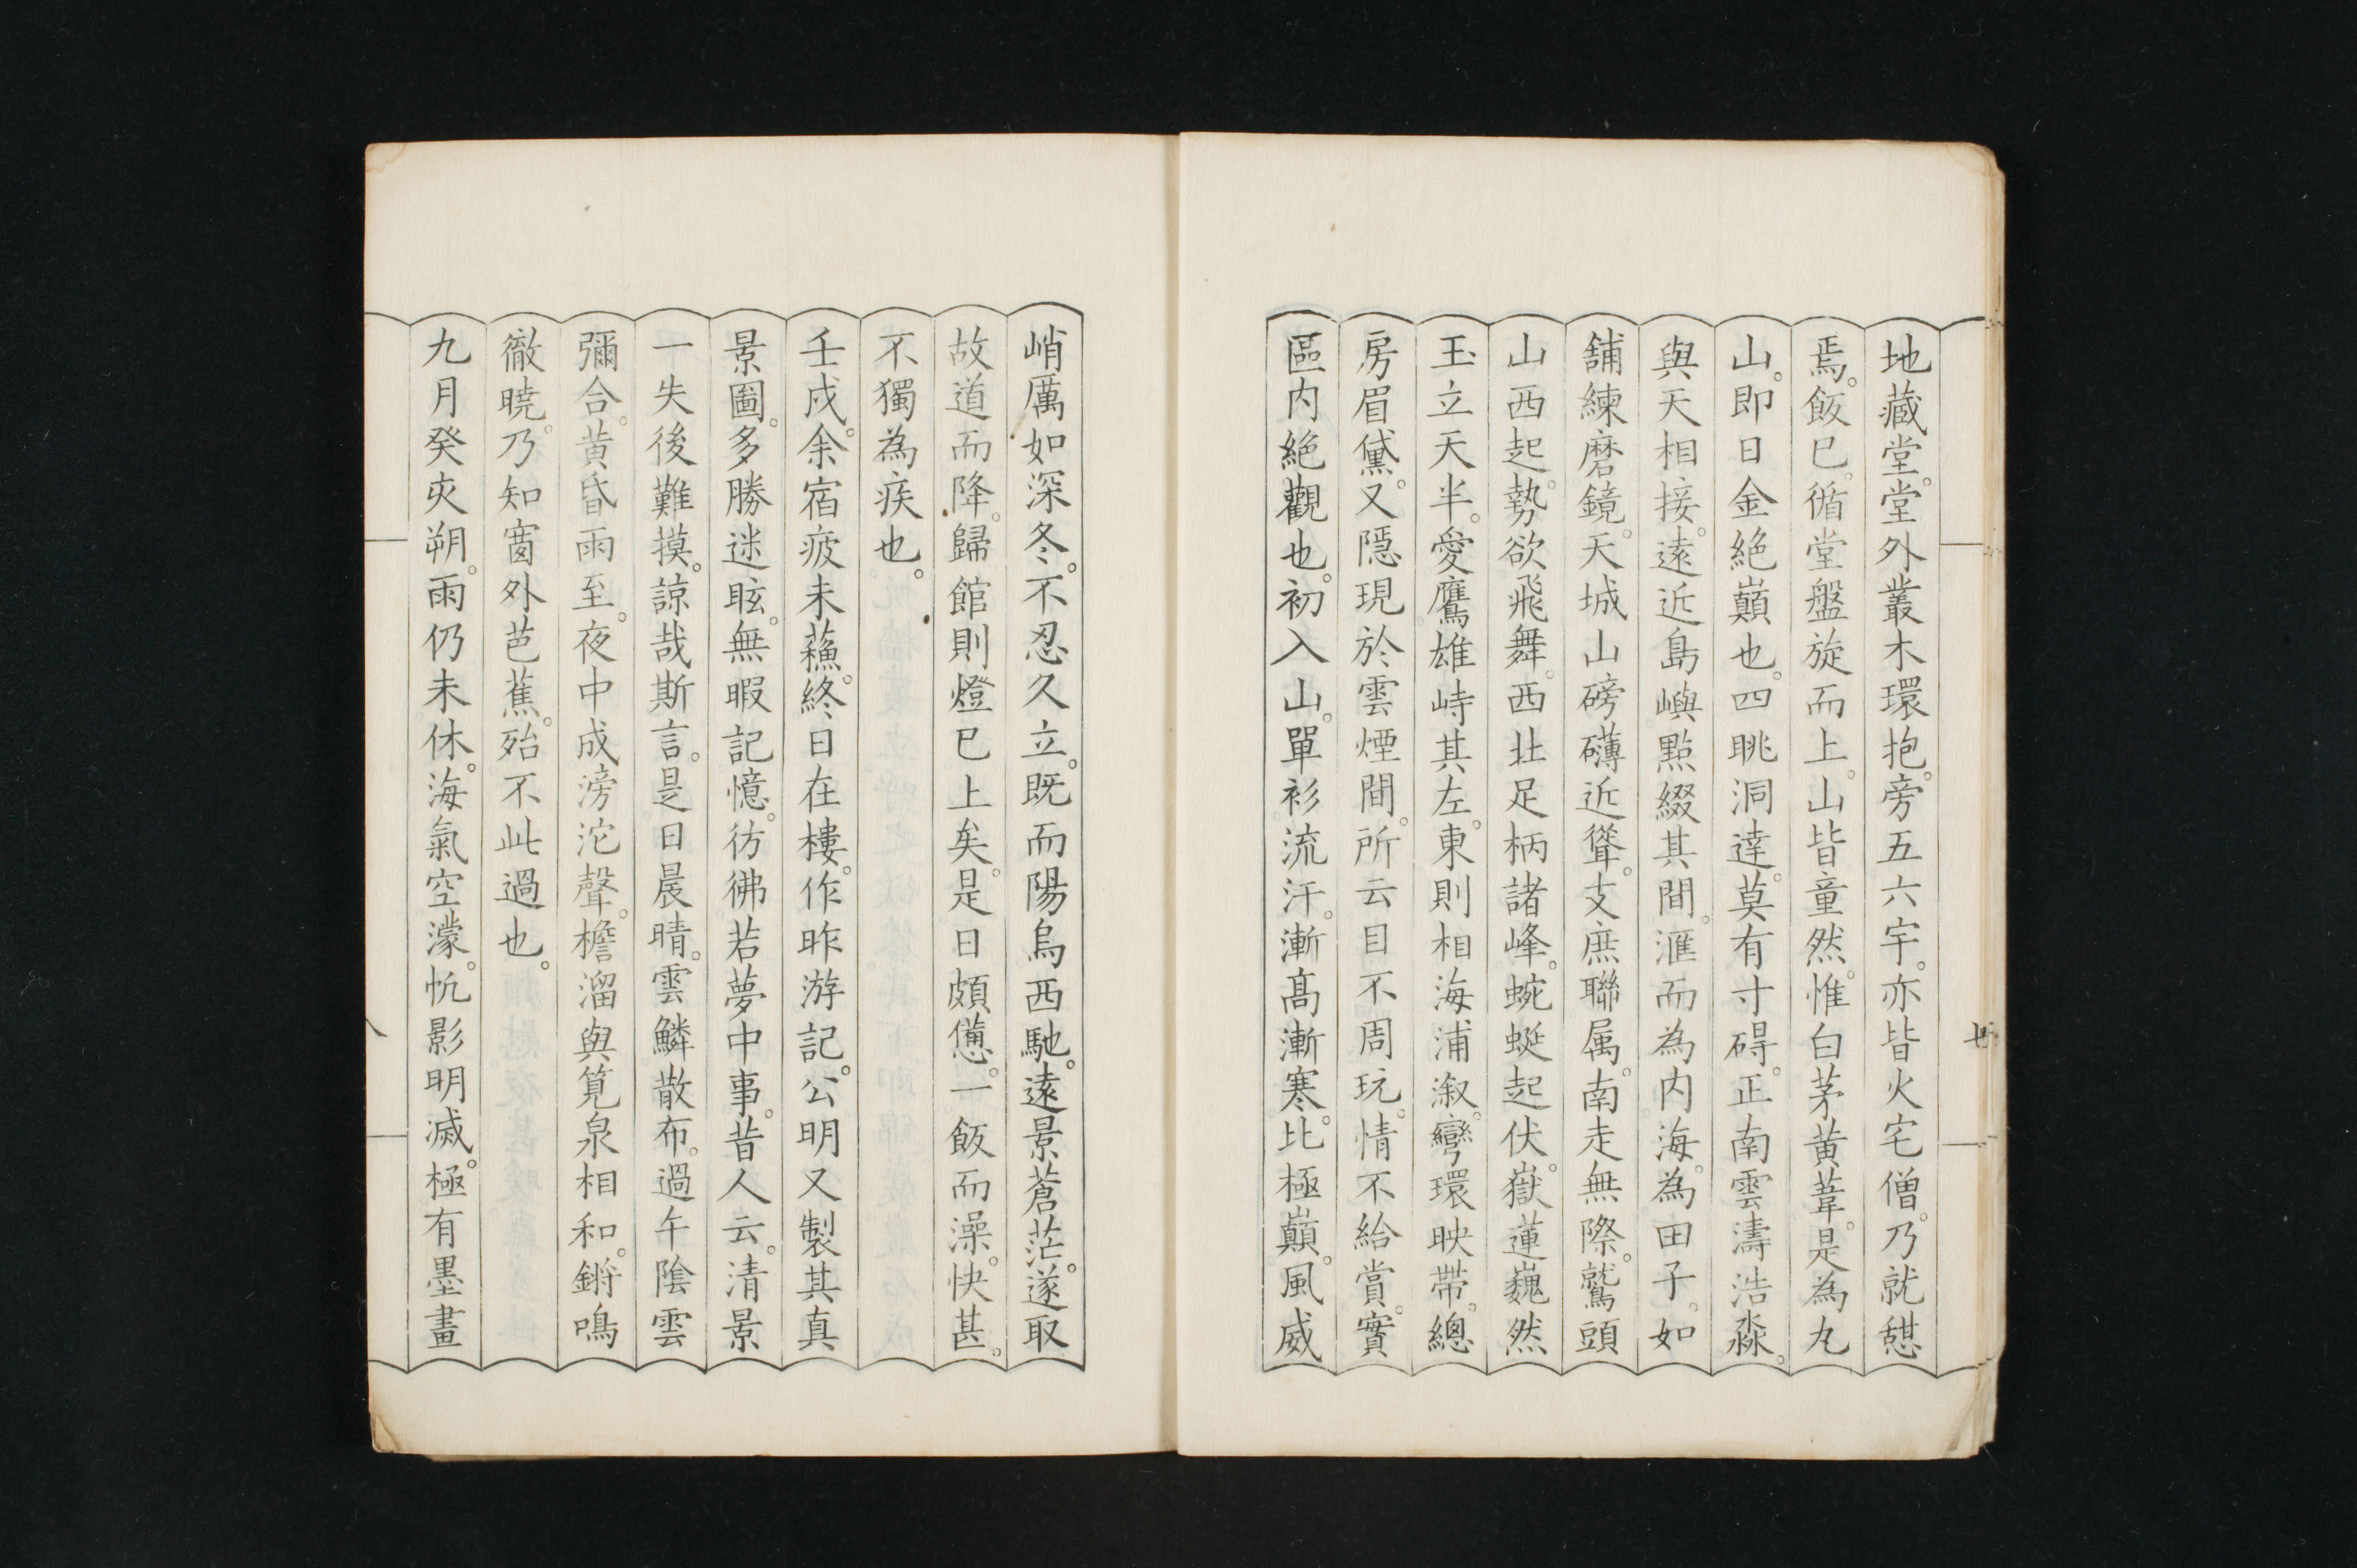 地藏堂。堂外叢木環抱。旁五六宇。亦皆火宅僧。乃就憇
焉。飯已。循堂盤旋而上。山皆童然。惟白茅黄葦。是為丸
山。即日金絶巓也。四眺洞達。莫有寸碍。正南雲濤浩淼。
與天相接。遠近島嶼點綴其間。滙而為内海。為田子。如
舖練磨鏡。天城山磅礴近聳。支庶聯属。南走無際。鷲頭
山西起。勢欲飛舞。西北足柄諸峰。蜿蜒起伏。嶽蓮巍然
玉立天半。愛鷹雄峙其左。東則相海浦溆。彎環映帶。總
房眉黛。又隠現於雲煙間。所云目不周玩。情不給賞。實
區内絶觀也。初入山。單衫流汗。漸髙漸寒。比極巓。風威
峭厲如深冬。不忍久立。既而陽烏西馳。遠景蒼茫。遂取
故道而降。歸館則燈已上矣。是日頗憊。一飯而澡。快甚。
不獨為疾也。
壬戌。余宿疲未蘓。終日在樓。作昨游記。公明又製其真
景圖。多勝迷眩。無暇記憶。彷彿若夢中事。昔人云。清景
一失後難摸。諒哉斯言。是日晨晴。雲鱗散布。過午陰雲
彌合。黄昏雨至。夜中成滂沱聲。檐溜與筧泉相和。鏘鳴
徹曉。乃知窗外芭蕉。殆不此過也。
九月癸亥朔。雨仍未休。海氣空濛。帆影明滅。極有墨畫
廿